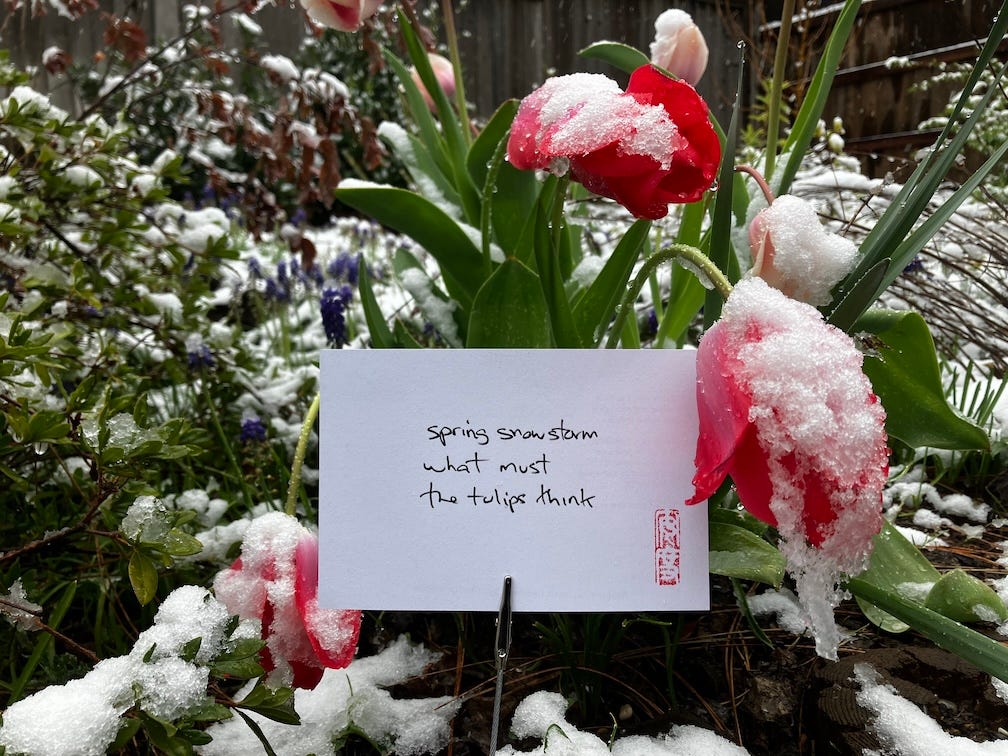 spring snowstorm
what must
the tulips think